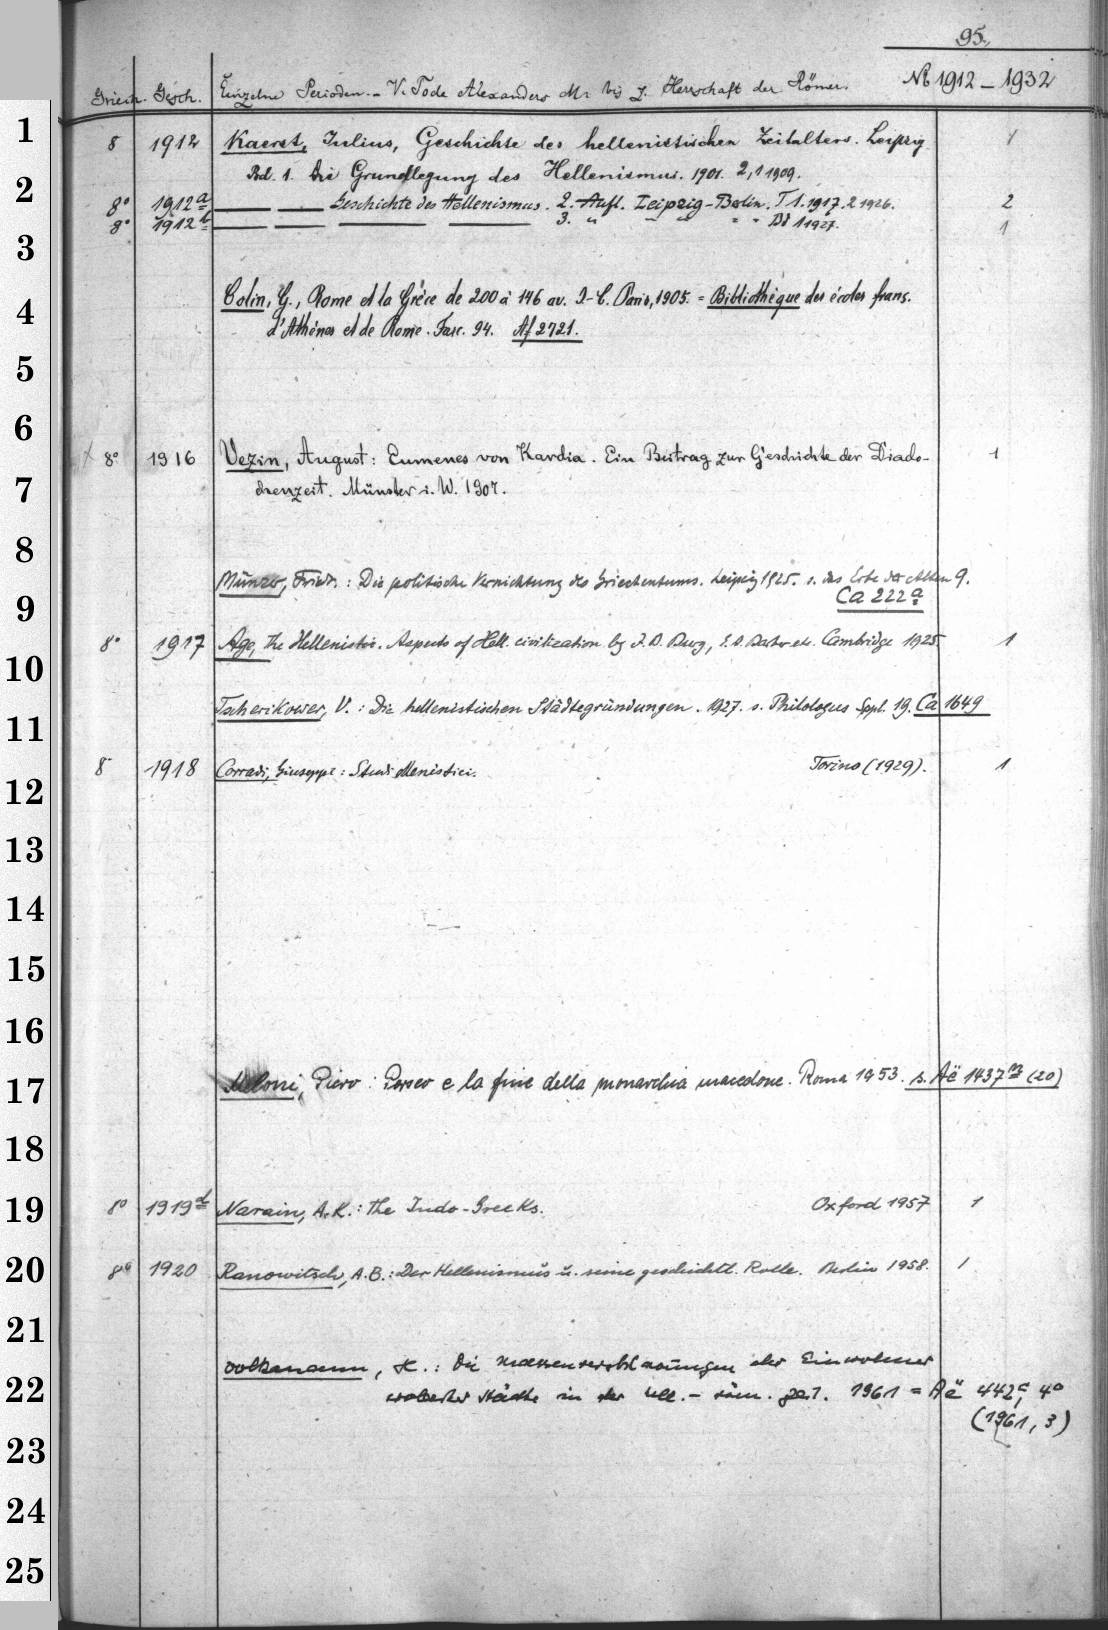 95.
Griech. Gesch. Einzelne Perioden. - V. Tode Alexanders M. bis z. Herrschaft der Römer. No 1912 - 1932
1
8 1912 Kaerst, Julius, Geschichte des hellenistischen Zeitalters. Leipzig 1
Bd. 1. Die Grundlegung des Hellenismus. 1901. 2,1 1909.
2
8° 1912a Geschichte des Hellenismus. 2. Aufl. Leipzig-Berlin. T 1. 1917. 2 1926. 2
8° 1912b 3. " " " " " Bd 1 1927. 1
3
Colin, G., Rome et la Grèce de 200 à 146 av. J-C. Paris, 1905. = Bibliothèque des écoles franç.
4
d'Athènes et de Rome. Fasc. 94. Af 2721.
5
6
8° 1916 Vezin, August: Eumenes von Kardia. Ein Beitrag zur Geschichte der Diado- 1
7
chenzeit. Münster i. W. 1907.
8
Münzer, Friedr.: Die politische Vernichtung des Griechentums. Leipzig 1925. s. das Erbe der Alten 9.
9
Ca 222a
8° 1917 Age, the Hellenistic. Aspects of Hell. civilization by J. B. Bury, E. A. Barber etc. Cambridge 1925. 1
10
Tscherikower, V.: Die hellenistischen Städtegründungen. 1927. s. Philologus Sppl. 19. Ca 1649
11
8° 1918 Corradi, Giuseppe: Studi ellenistici. Torino (1929). 1
12
13
14
15
16
17
Meloni, Piero: Perseo e la fine della monarchia macedone. Roma 1953. s. Aë 1437m (20)
18
19
8° 1919d Narain, A.K.: The Indo-Greeks. Oxford 1957 1
20
8° 1920 Ranowitsch, A.B.: Der Hellenismus u. seine geschichtl. Rolle. Berlin 1958. 1
21
Volkmann, H.: Die Massenversklavungen der Einwohner
22
eroberter Städte in der hell.-röm. Zeit. 1961 = Aë 442c, 4°
(1961, 3)
23
24
25